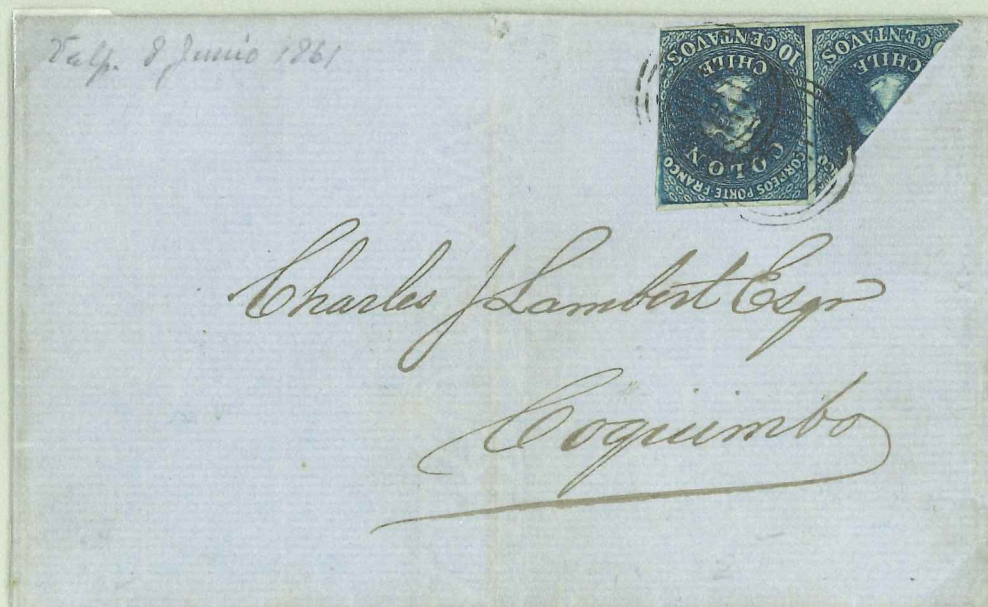 Valp. 8 Junio 1861
10 CENTAVOS
CHILE
COLON
CORREOS PORTE FRANCO
CENTAVOS
CHILE
Charles J Lambert Esqr
Coquimbo